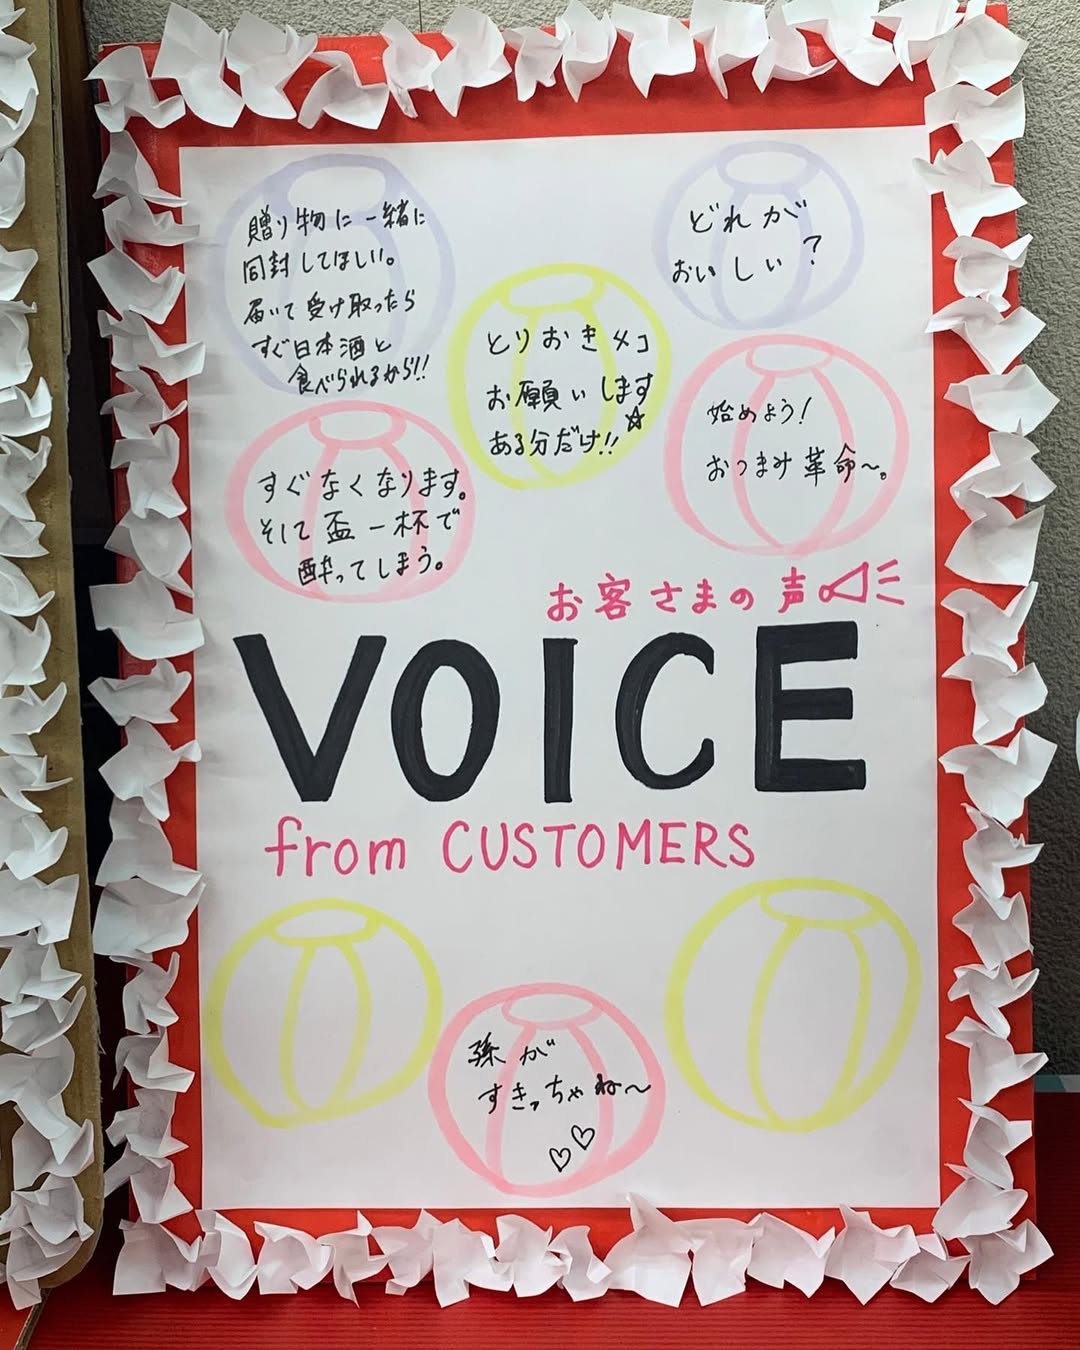 贈り物に一緒に
同封してほしい。
届いて受け取ったら
すぐ日本酒と
食べられるから!!
どれが
おいしい?
とりおきメコ
お願いします
ある分だけ!!☆
始めよう!
おつまみ革命〜。
すぐなくなります。
そして盃一杯で
酔ってしまう。
お客さまの声
VOICE
from CUSTOMERS
孫が
すきっちゃね〜
♡♡